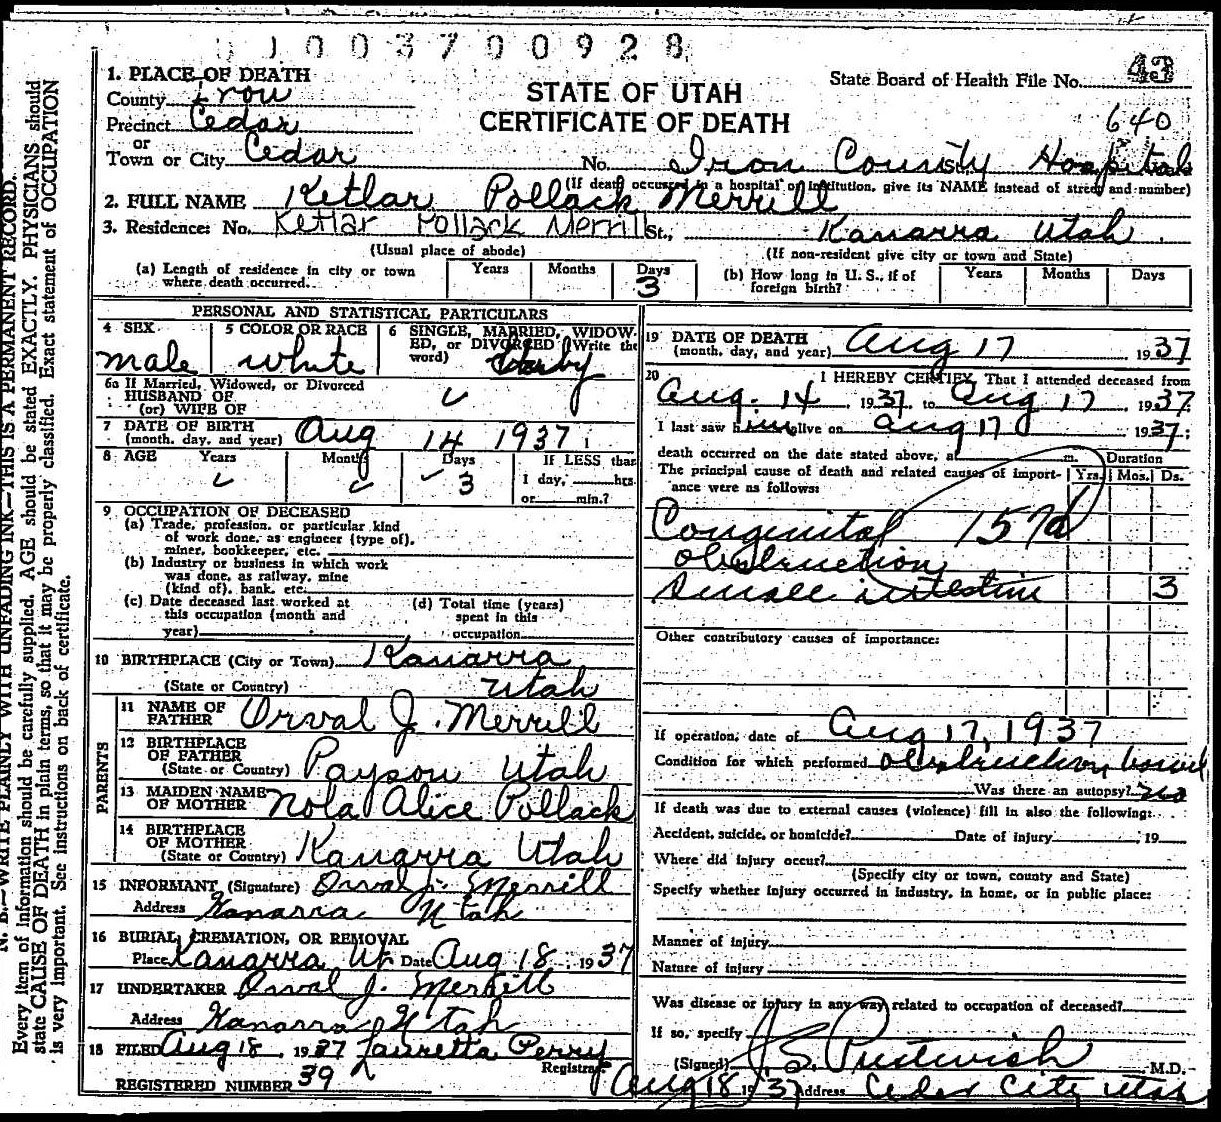 003700928
1. PLACE OF DEATH
County Iron
Precinct Cedar
or
Town or City Cedar
STATE OF UTAH
CERTIFICATE OF DEATH
State Board of Health File No. 43
640
No. Iron County Hospital
(If death occurred in a hospital or institution, give its NAME instead of street and number)
2. FULL NAME Ketlar Pollack Merrill
3. Residence: No. Ketlar Pollack Merrill St., Kanarra Utah
(Usual place of abode) (If non-resident give city or town and State)
(a) Length of residence in city or town where death occurred. Years Months Days 3
(b) How long in U. S., if of foreign birth? Years Months Days
PERSONAL AND STATISTICAL PARTICULARS
4 SEX male
5 COLOR OR RACE white
6 SINGLE, MARRIED, WIDOWED, or DIVORCED (Write the word)
6a If Married, Widowed, or Divorced
HUSBAND OF
(or) WIFE OF
7 DATE OF BIRTH
(month, day, and year) Aug 14 1937
8 AGE Years Months Days 3 If LESS than
1 day, hrs.
or min.?
9 OCCUPATION OF DECEASED
(a) Trade, profession, or particular kind
of work done, as engineer (type of),
miner, bookkeeper, etc.
(b) Industry or business in which work
was done, as railway, mine
(kind of), bank, etc.
(c) Date deceased last worked at
this occupation (month and
year)
(d) Total time (years)
spent in this
occupation
10 BIRTHPLACE (City or Town) Kanarra
(State or Country) Utah
PARENTS
11 NAME OF
FATHER Orval J. Merrill
12 BIRTHPLACE
OF FATHER
(State or Country) Payson Utah
13 MAIDEN NAME
OF MOTHER Nola Alice Pollack
14 BIRTHPLACE
OF MOTHER
(State or Country) Kanarra Utah
15 INFORMANT (Signature) Orval J. Merrill
Address Kanarra Utah
16 BURIAL, CREMATION, OR REMOVAL
Place Kanarra Ut Date Aug 18, 1937
17 UNDERTAKER Orval J. Merrill
Address Kanarra Utah
18 FILED Aug 18, 1937 Lauretta Perry
Registrar
REGISTERED NUMBER 39
19 DATE OF DEATH
(month, day, and year) Aug 17 1937
20 I HEREBY CERTIFY, That I attended deceased from
Aug. 14, 1937, to Aug 17, 1937;
I last saw him alive on Aug 17 1937;
death occurred on the date stated above, at m. Duration
The principal cause of death and related causes of importance were as follows: Yrs. Mos. Ds.
Congenital 157d
obstruction
Small intestine 3
Other contributory causes of importance:
If operation, date of Aug 17, 1937
Condition for which performed obstruction bowel
Was there an autopsy? no
If death was due to external causes (violence) fill in also the following:
Accident, suicide, or homicide? Date of injury 19
Where did injury occur?
(Specify city or town, county and State)
Specify whether injury occurred in industry, in home, or in public place:
Manner of injury
Nature of injury
Was disease or injury in any way related to occupation of deceased?
If so, specify
(Signed) J. S. Prestwich M.D.
Aug 18 1937 Address Cedar City Utah
N. B.—WRITE PLAINLY WITH UNFADING INK—THIS IS A PERMANENT RECORD.
Every item of information should be carefully supplied. AGE should be stated EXACTLY. PHYSICIANS should
state CAUSE OF DEATH in plain terms, so that it may be properly classified. Exact statement of OCCUPATION
is very important. See instructions on back of certificate.